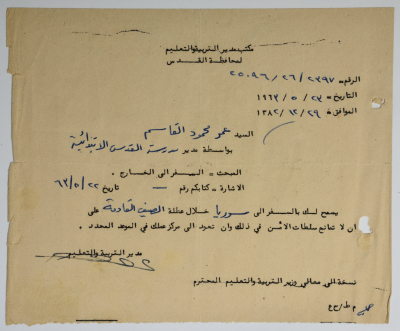 مكتب مدير التربية والتعليم
لمحافظة القدس
الرقم = ٢٣٩٧/٢٦/٢٥٠٩٦
التاريخ = ٢٣ / ٥ / ١٩٦٣
الموافق = ٢٩ / ١٢ / ١٣٨٢
السيد عمر محمود القاسم
بواسطة مدير مدرسة القدس الابتدائية
المبحث = السفر الى الخارج .
الاشارة = كتابكم رقم — تاريخ ٢٢/٥/٦٣
يسمح لك بالسفر الى سوريا خلال عطلة الصيف القادمة على
ان لا تمانع سلطات الامن في ذلك وان تعود الى مركز عملك في الموعد المحدد .
مدير التربية والتعليم
نسخة الى معالي وزير التربية والتعليم المحترم
م ط/ح ع